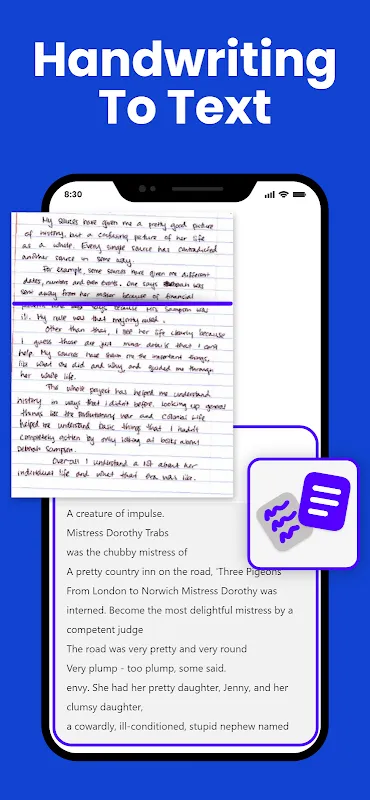 Handwriting
To Text
8:30
My sources have given me a pretty good picture
of history, but a confusing picture of her life
as a whole. Every single source has contradicted
another source in some way.
For example, some sources have given me different
dates, numbers and even events. One says was
sent away from her master because of financial
says because Mrs. Sampson was
My rule was that majority ruled.
Other than that, I see her life clearly because
I guess those are just minor details that I can't
help. My sources have shown me the important things,
like what she did and why, and guided me through
her whole life.
The whole project has helped me understand
history in ways that I didn't before. Looking up general
things like the Revolutionary war and Colonial Life
helped me understand basic things that I hadn't
completely gotten by only looking at books about
Deborah Sampson.
Overall I understand a lot about her
individual life and what that era was like.
A creature of impulse.
Mistress Dorothy Trabs
was the chubby mistress of
A pretty country inn on the road, 'Three Pigeons'
From London to Norwich Mistress Dorothy was
interned. Become the most delightful mistress by a
competent judge
The road was very pretty and very round
Very plump - too plump, some said.
envy. She had her pretty daughter, Jenny, and her
clumsy daughter,
a cowardly, ill-conditioned, stupid nephew named